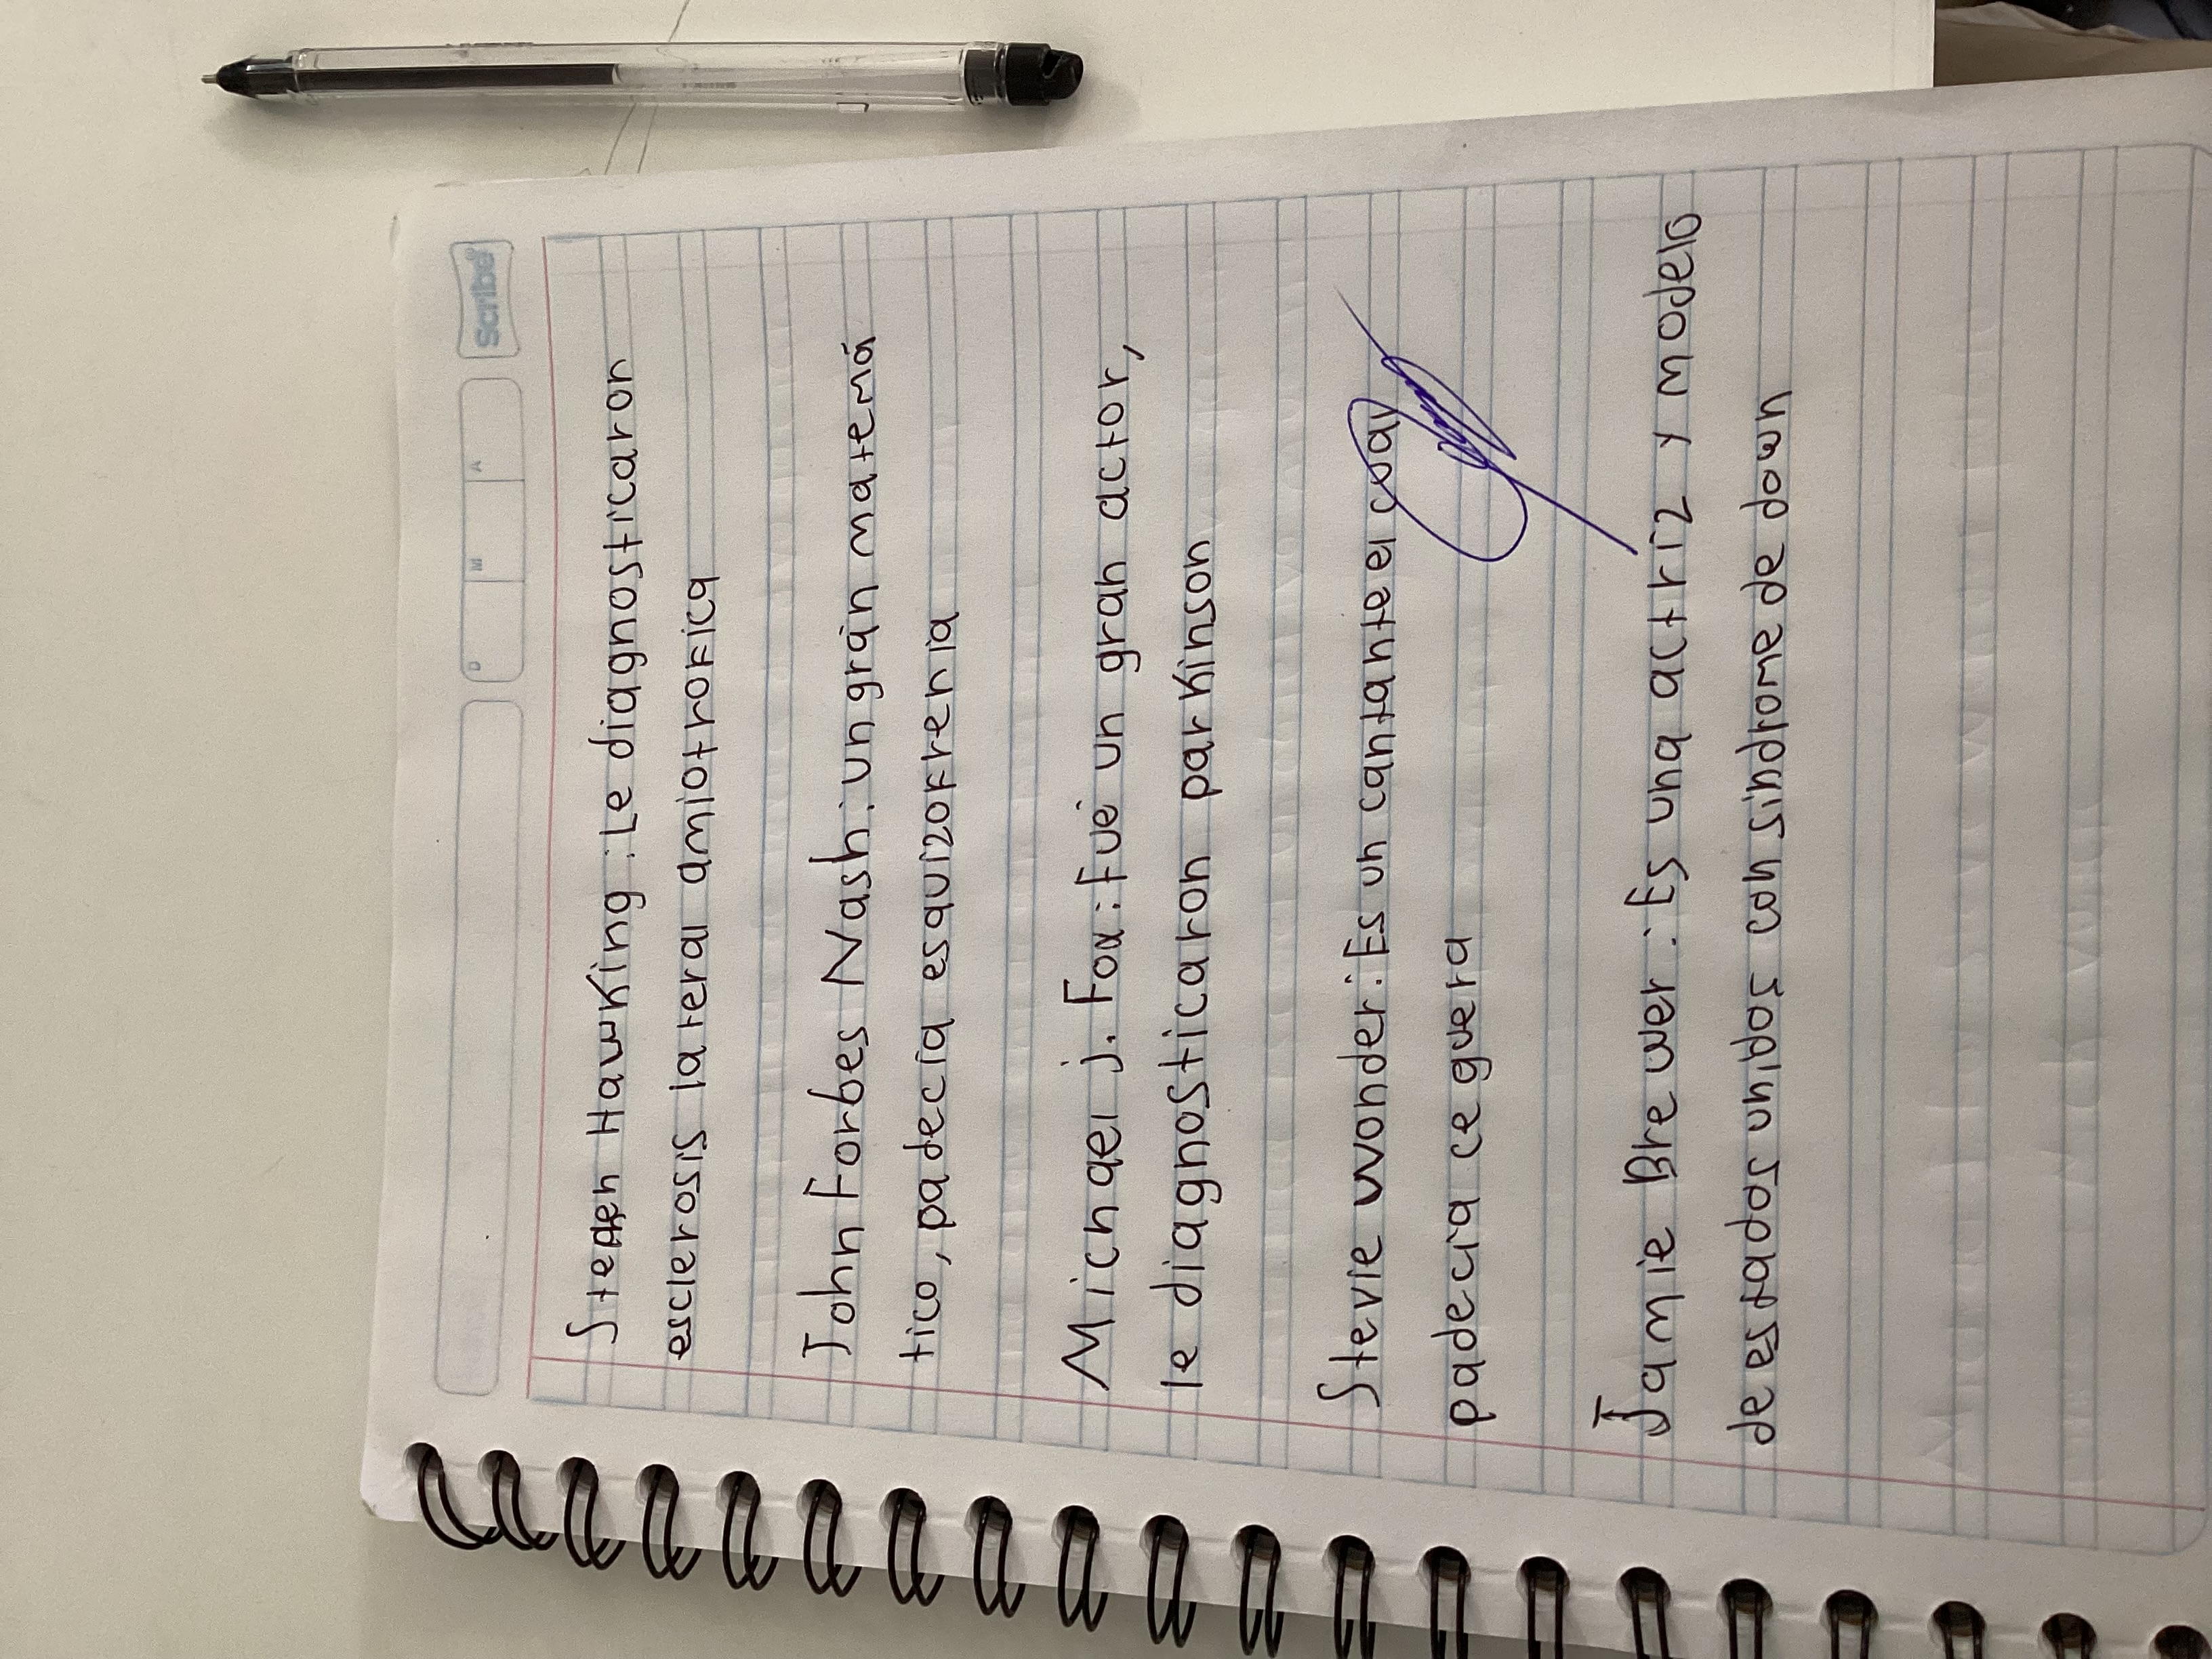 Scribe
D M A
Stephen Hawking: Le diagnosticaron
esclerosis lateral amiotrofica
John Forbes Nash: un gran matemá
tico, padecía esquizofrenia
Michael j. Fox: fué un gran actor,
le diagnosticaron parkinson
Stevie wonder: Es un cantante el cual
padecia ceguera
Jamie Brewer: Es una actriz y modelo
de estados unidos con sindrome de down